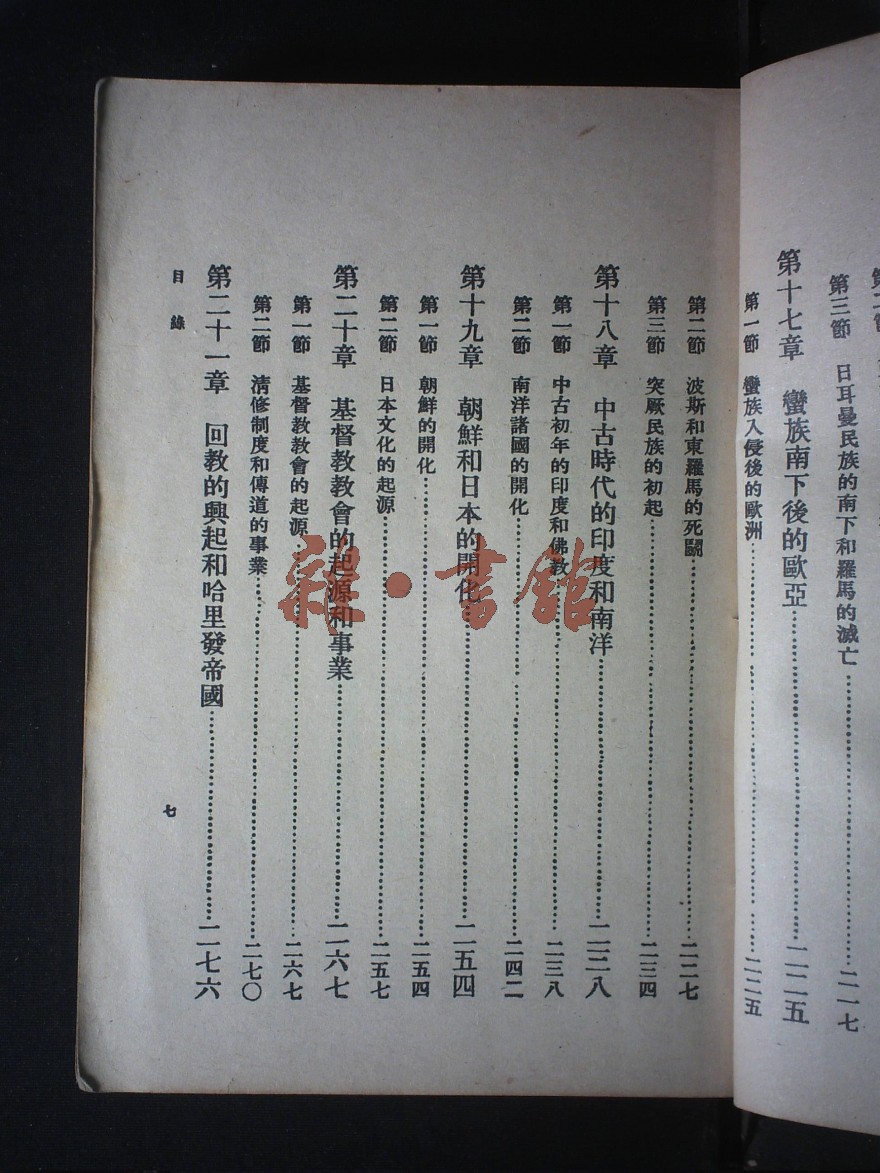 第三節 日耳曼民族的南下和羅馬的滅亡……二一七
第十七章 蠻族南下後的歐亞……二二五
第一節 蠻族入侵後的歐洲……二二五
第二節 波斯和東羅馬的死鬭……二二七
第三節 突厥民族的初起……二三四
第十八章 中古時代的印度和南洋……二三八
第一節 中古初年的印度和佛教……二三八
第二節 南洋諸國的開化……二四二
第十九章 朝鮮和日本的開化……二五四
第一節 朝鮮的開化……二五四
第二節 日本文化的起源……二五七
第二十章 基督教教會的起源和事業……二六七
第一節 基督教教會的起源……二六七
第二節 清修制度和傳道的事業……二七〇
第二十一章 回教的興起和哈里發帝國……二七六
目錄 七
雜·書館